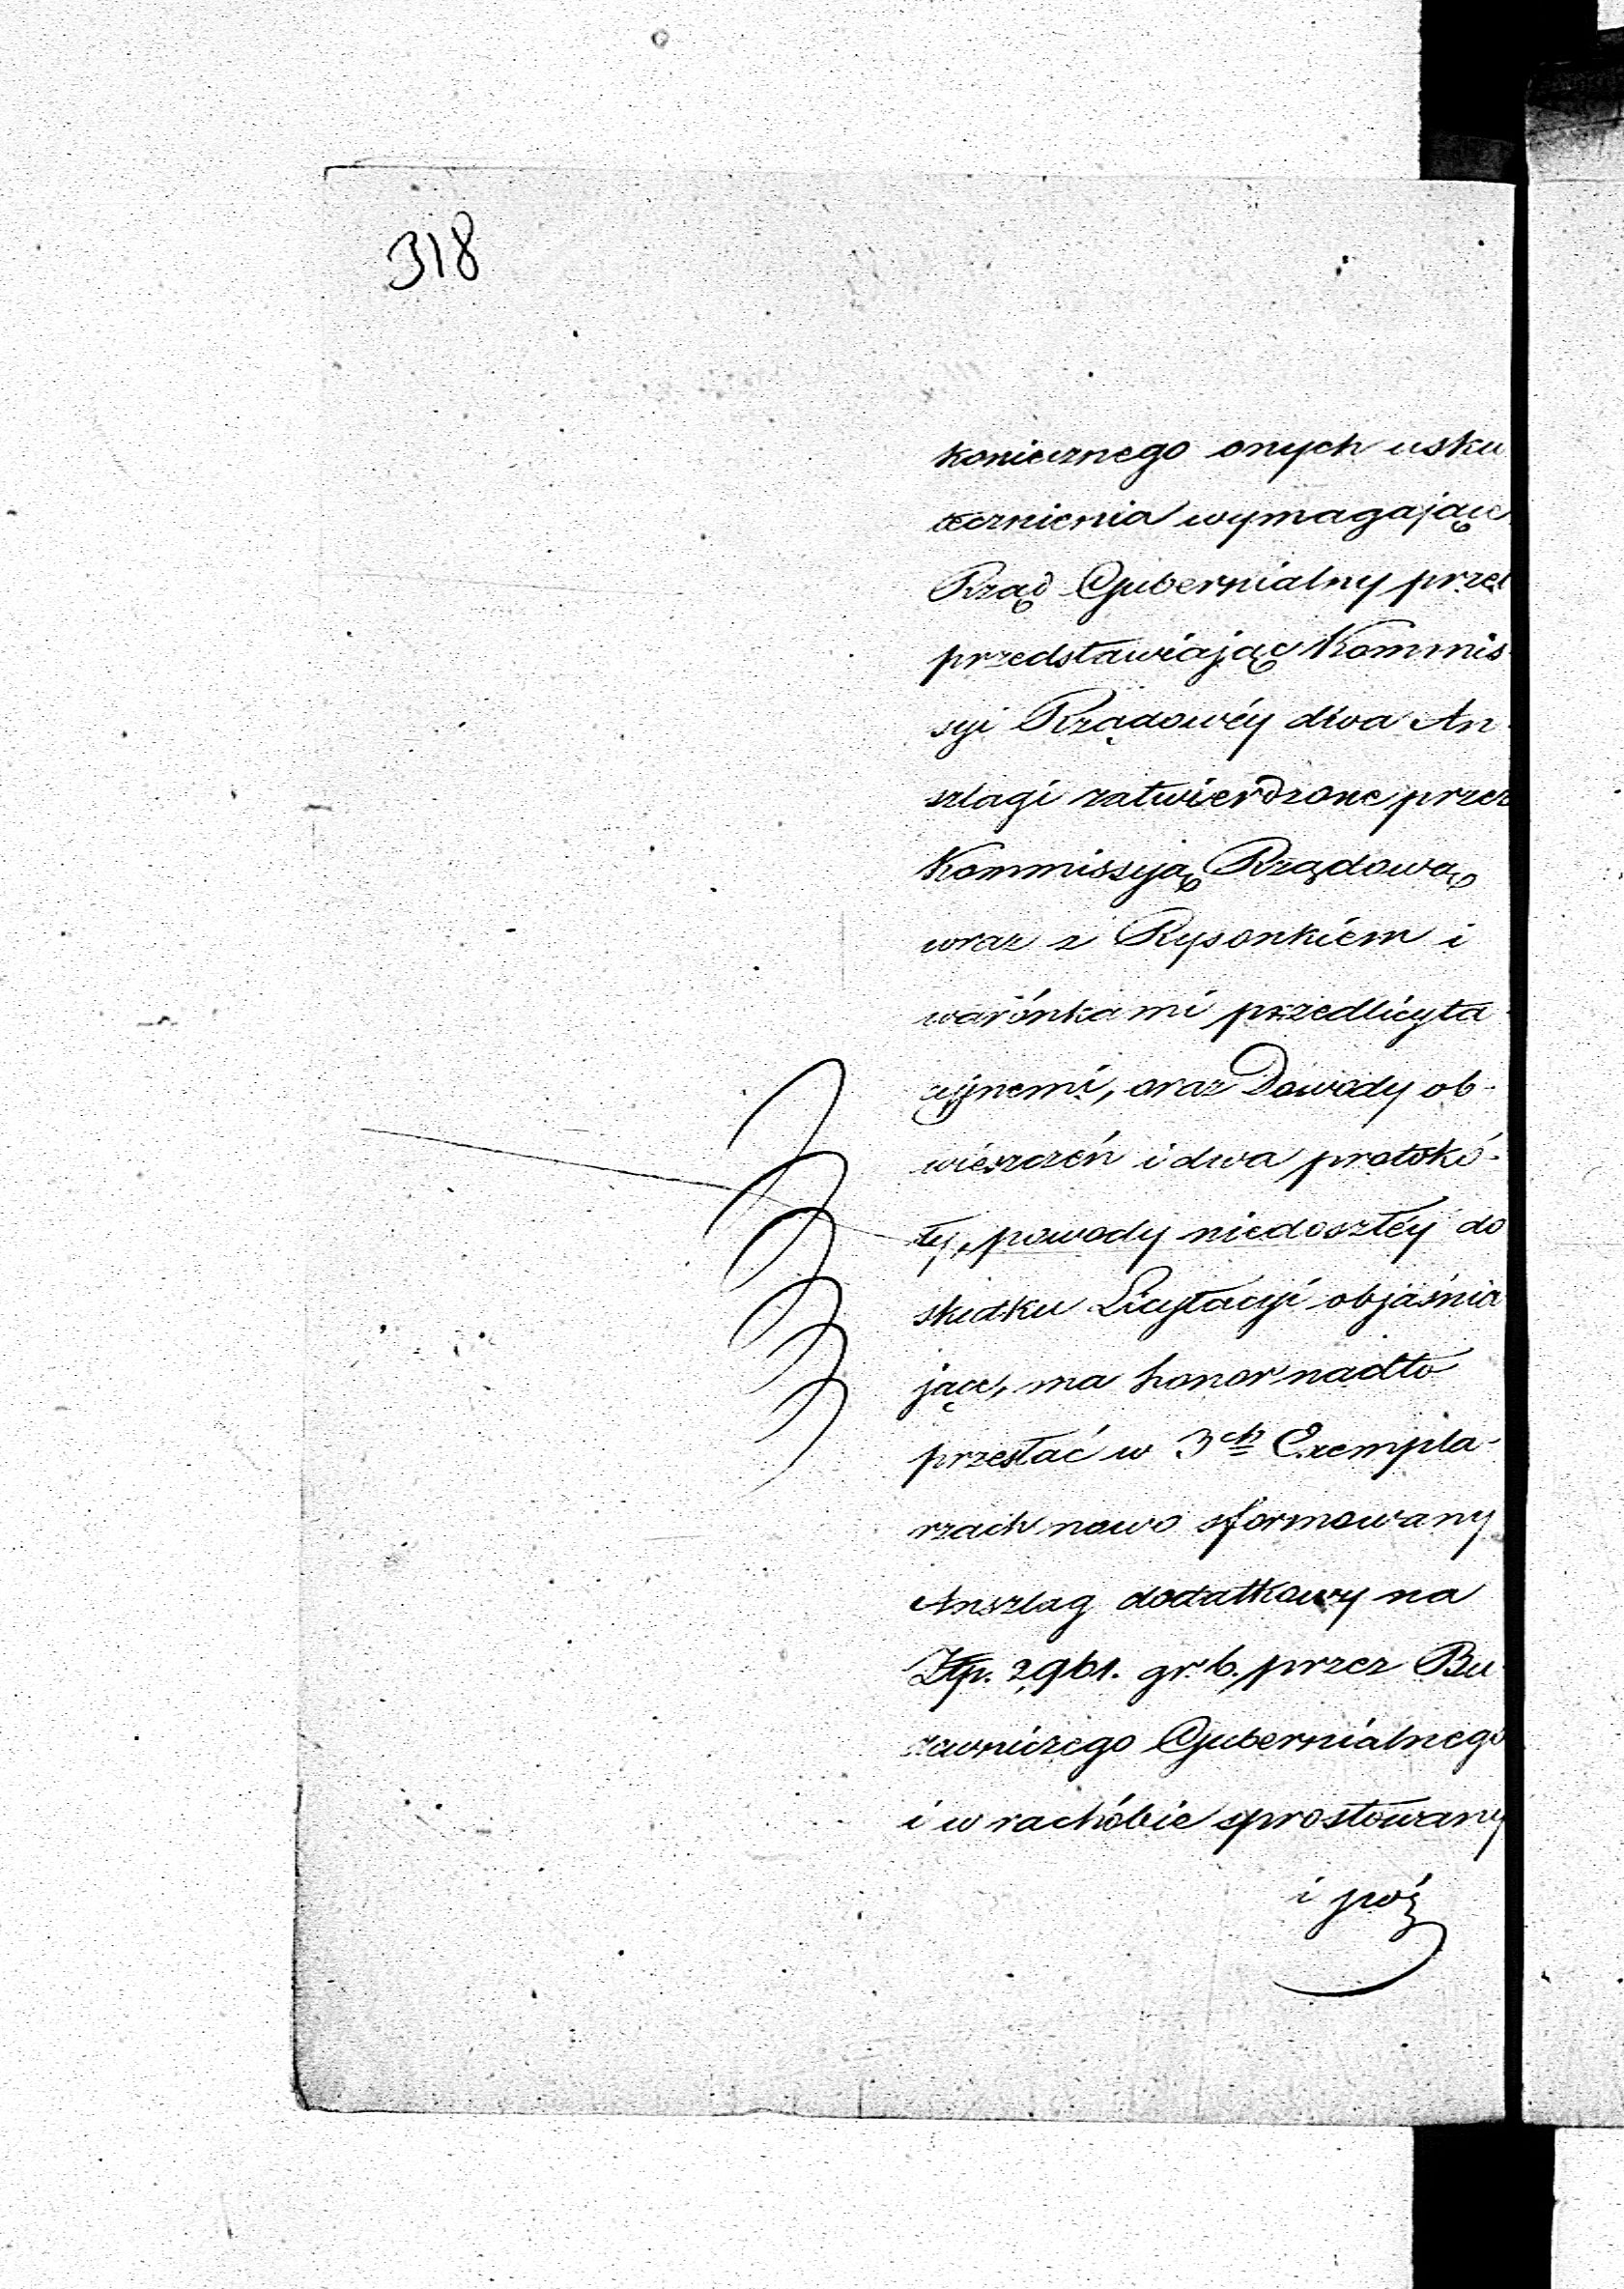 318
koniecznego onych usku
tecznienia wymagające
Rząd Gubernialny
przedstawiając Kommis
syi Rządowéy dwa An
szlagi zatwierdzone przez
Kommissyą Rządową
wraz z Rysonkiem i
warónkami przedlicyta
cyjnemi, oraz Dowody ob-
wieszczeń i dwa protokó-
ły, powody niedoszłéy do
skutku Licytacyi objaśnia
jące, ma honor nadto
przesłać w 3ch Exempla-
rzach nowo sformowany
Anszlag dodatkowy na
Złp. 2,961. gr. 6. przez Bu
downiczego Gubernialnego
i w rachóbie sprostowany
i póź